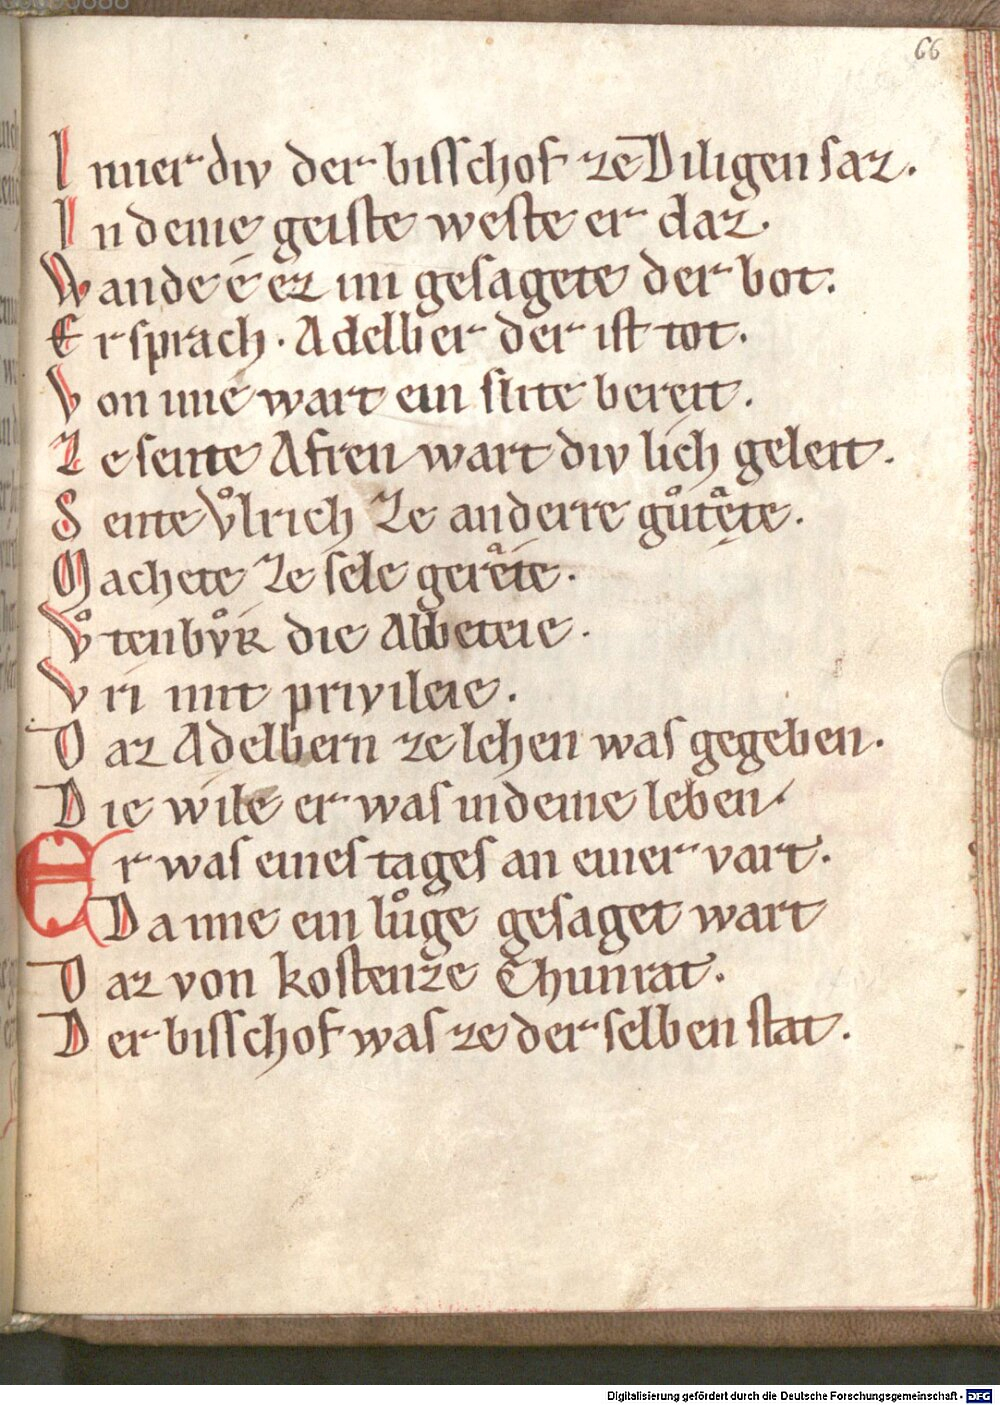 66
I nner div der bisschof zeDiligen saz.
I n deme geiste weste er daz.
W ande é ez im gesagete der bot.
E r sprach. Adelber der ist tot.
V on ime wart ein slite bereit.
Z e sente Afren wart div lich geleit.
S eínte Vͦlrich Ze anderre guͦtaͤte.
M achete Ze sele geraͤte.
Vͦ tenbvͦr die Abbeteie.
V ri mit privileie.
D az Adelbern ze lehen was gegeben.
D ie wile er was in deme leben.
E r was eines tages an einer vart.
D a ime ein luͦge gesaget wart
D az von kostenze Chunrat.
D er bisschof was ze der selben stat.
Digitalisierung gefördert durch die Deutsche Forschungsgemeinschaft - DFG